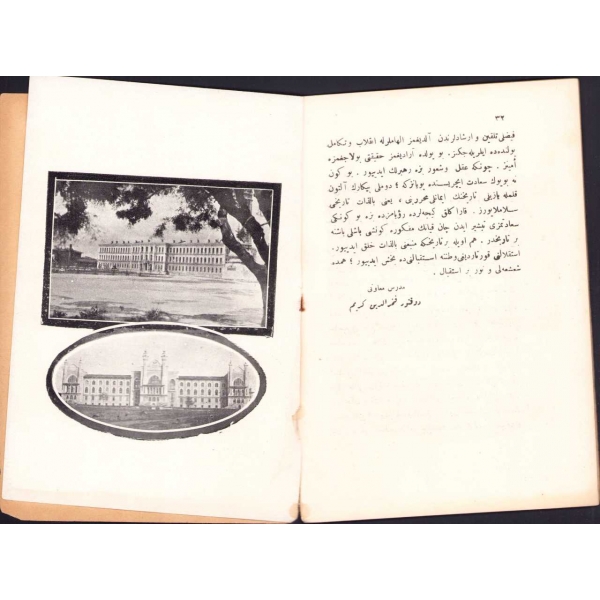 ٣٢
فیضلی تلقین و ارشادلرندن آلدیغمز الهاملرله انقلاب و تکامل
یولنده ایلریله‌جکز. بو یولده آرادیغمز حقیقتی بولاجغمزه
أمینز. چونکه عقل و شعور بزه رهبرلك ایدییور. بو کون
نه بویوك سعادت ایچریسنده یوبازکه؛ دوملی بیکارك آلتون
قلمله یازیلی تاریخنك ایمانلی محرری، یعنی بالذات تاریخی
سلاملایورز. قارا کلق کیجه‌لرده رؤیامزده بزه بو کونکی
سعادتمزی تبشیر ایدن جان قیانك مفکوره کونشی باشلی باشنه
بر تاریخدر. هم اویله بر تاریخکه منبعی بالذات خلق ایدییور.
استقلالنی قورتاردیغی وطننه استقبالنی‌ده بخش ایدییور؛ همده
شعشعه‌لی و نور بر استقبال.
مدرس معاونی
دوقتور فخرالدین کریم